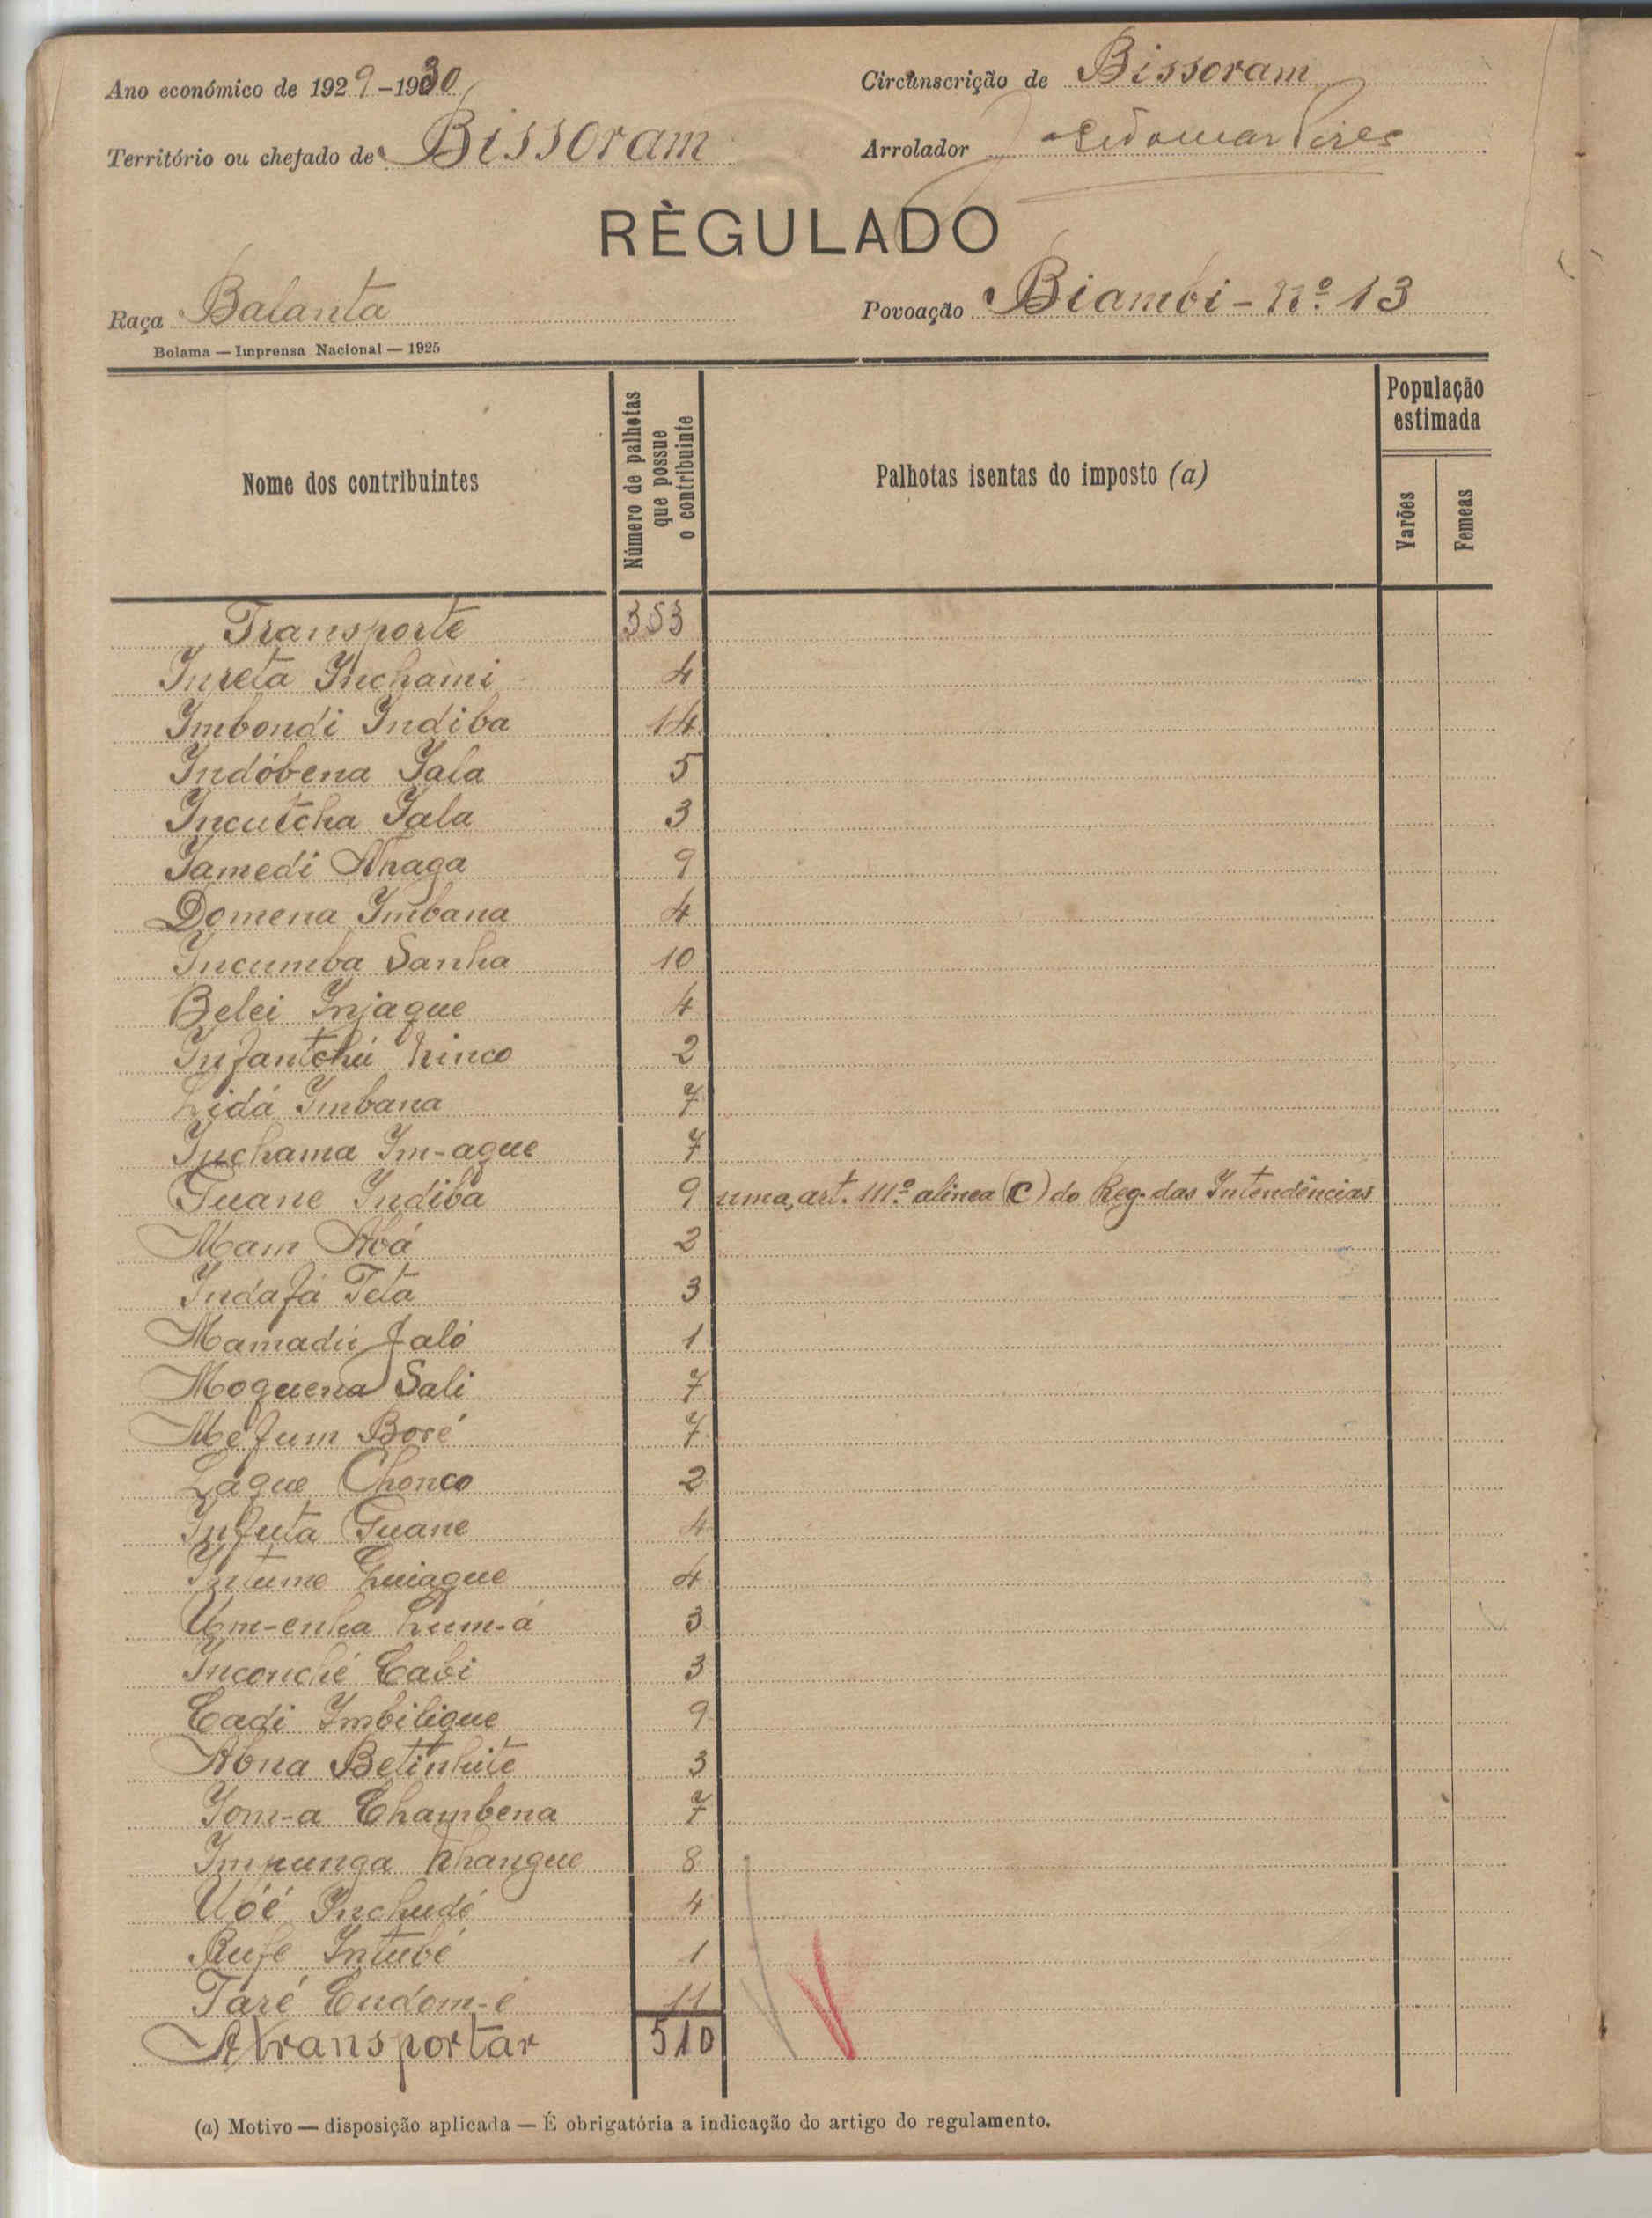 Ano económico de 1929-1930
Circunscrição de Bissoram
Território ou chefado de Bissoram
Arrolador Pires
RÈGULADO
Raça Balanta
Povoação Biambi - nº 13
Bolama — Imprensa Nacional — 1925
Nome dos contribuintes
Número de palhotas que possue o contribuinte
Palhotas isentas do imposto (a)
População estimada
Varões
Femeas
Transporte 353
Inreta Inchami 4
Imbondi Indiba 14
Indóbena Iala 5
Incutcha Iala 3
Iamedi Nhaga 9
Domena Imbana 4
Incumba Sanha 10
Belei Injaque 4
Infantchú Ninco 2
Lidá Imbana 7
Inchama Im-aque 7
Tuane Indiba 9 uma, art. 111º alinea (C) do Reg. das Intendências
Mam Abá 2
Indafá Teta 3
Mamadú Jaló 1
Moquena Sali 7
Méfum Boré 7
Laque Chonco 2
Infuta Tuane 4
Intume 4
Um-enha 3
Inconché Cabi 3
Cadi Imbilique 9
Abna Betinhite 3
Iom-a Chambena 7
Impunga Nhangue 8
Uóé Inchudé 4
Rufe Intubé 1
Taré Cudom-é 11
A transportar 510
(a) Motivo — disposição aplicada — É obrigatória a indicação do artigo do regulamento.